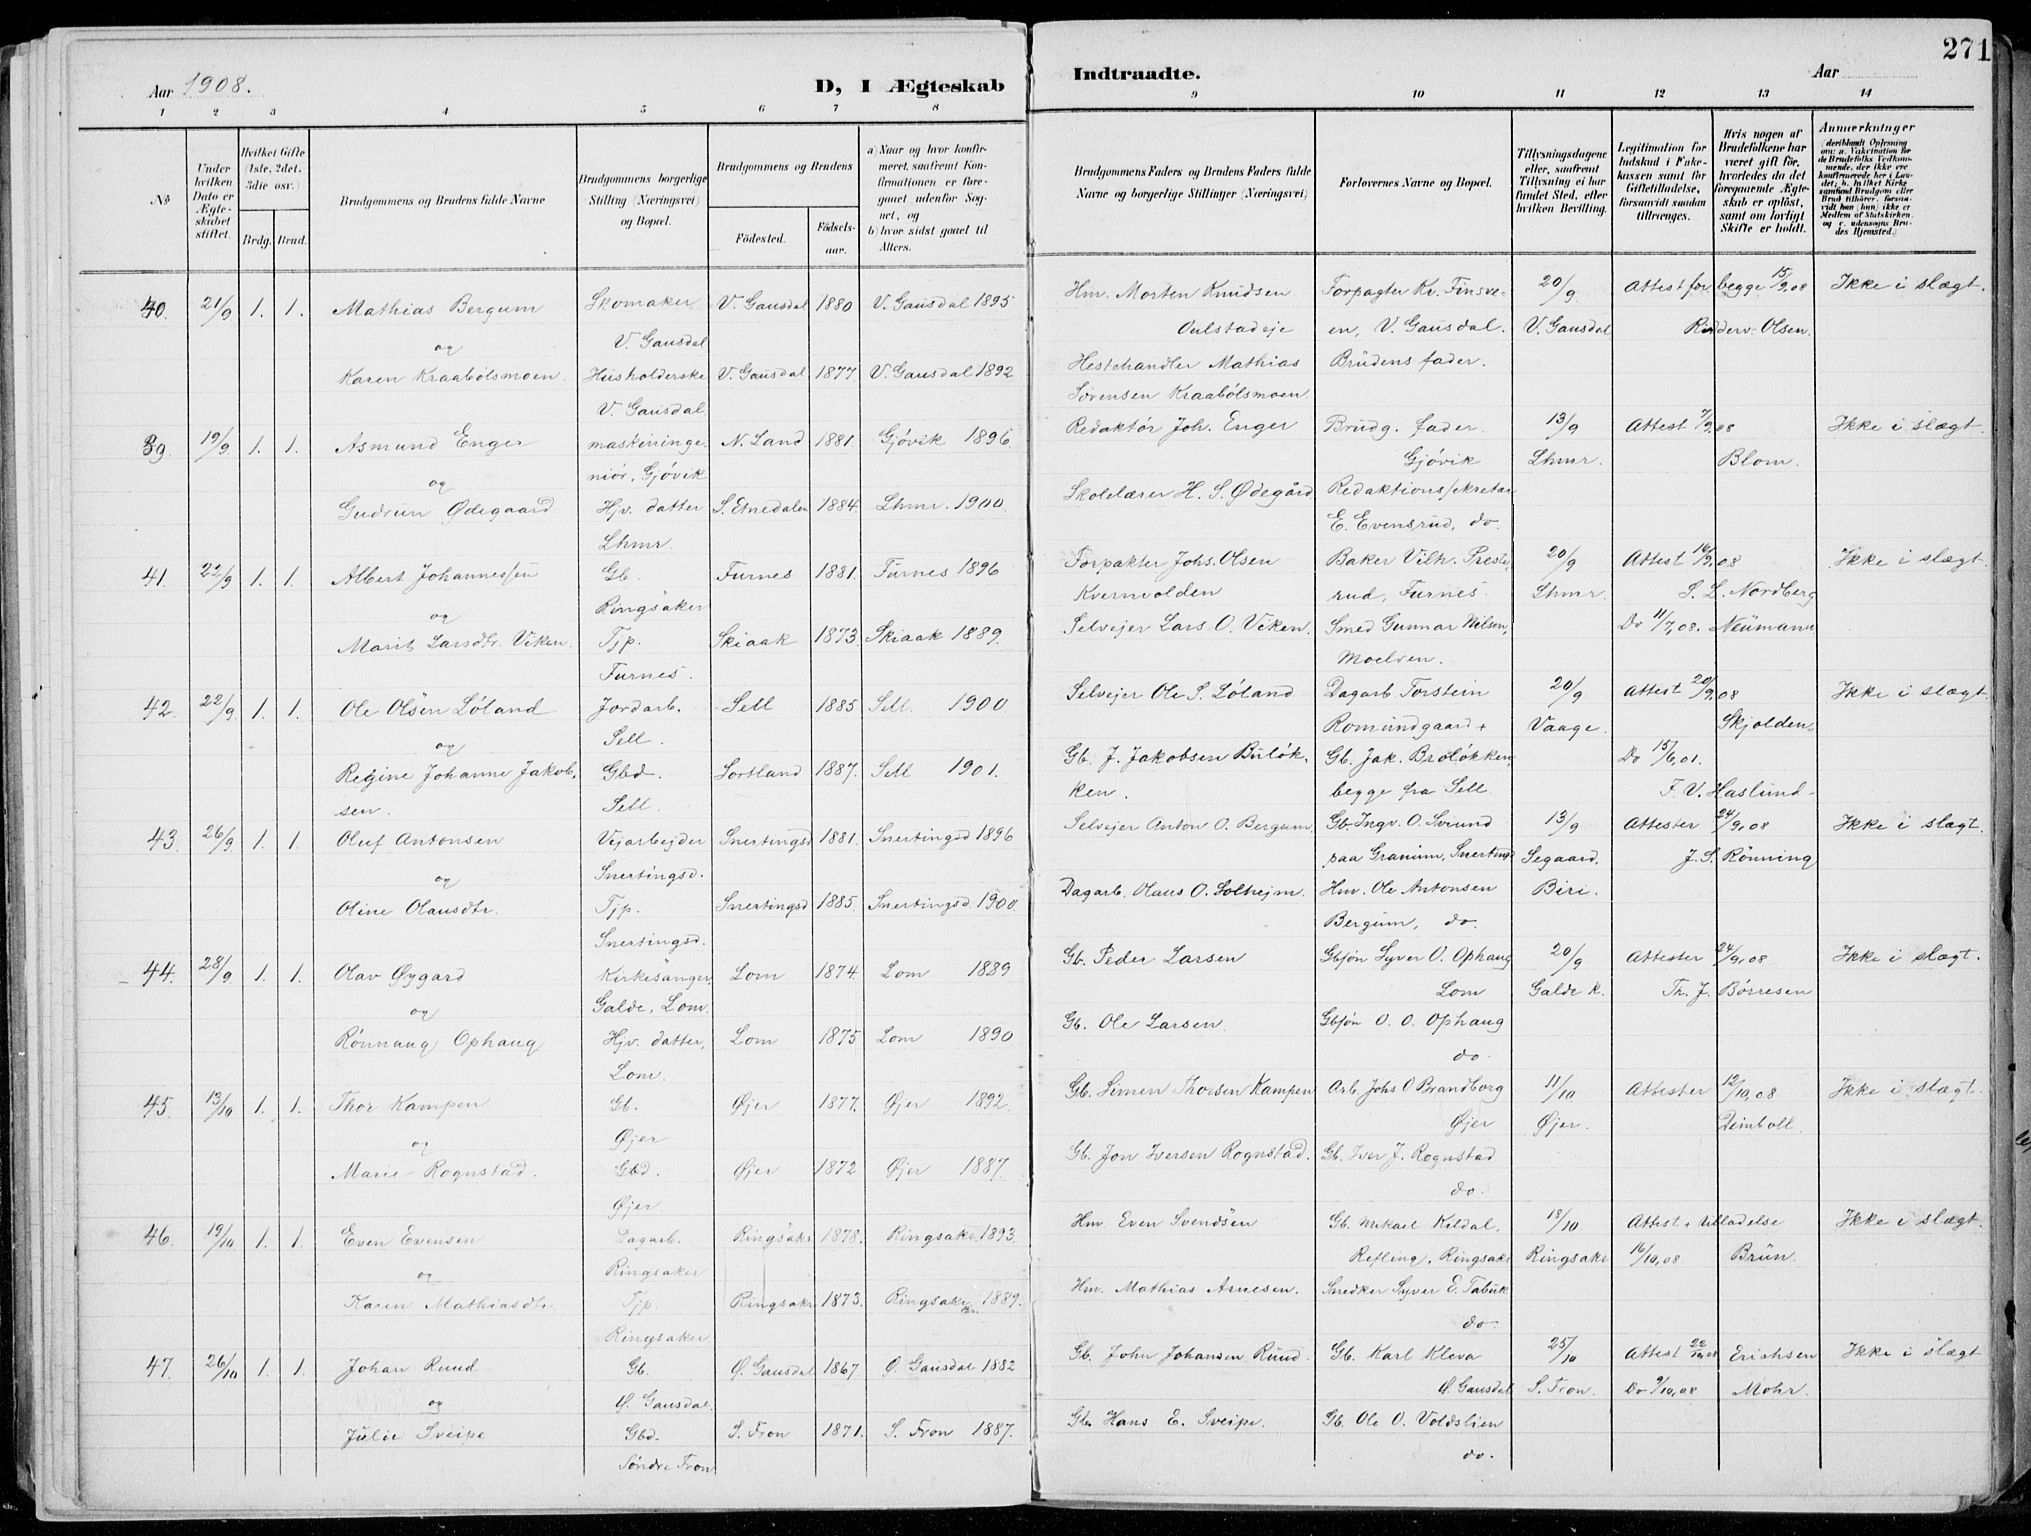 271
Aar 1908.
D, I Ægteskab
Indtraadte.
Aar
1 2 3 4 5 6 7 8 9 10 11 12 13 14
№
Under hvilken Dato er Ægteskabet stiftet.
Hvilket Gifte (1ste, 2det, 3die osv.)
Brdg. Brud.
Brudgommens og Brudens fulde Navne
Brudgommens borgerlige Stilling (Næringsvei) og Bopæl.
Brudgommens og Brudens
Fødested.
Fødselsaar.
a) Naar og hvor konfirmeret, saafremt Konfirmationen er foregaaet udenfor Sognet, og
b) hvor sidst gaaet til Alters.
Brudgommens Faders og Brudens Faders fulde Navne og borgerlige Stillinger (Næringsvei)
Forlovernes Navne og Bopæl.
Tillysningsdagene eller, saafremt Tillysning ei har fundet Sted, efter hvilken Bevilling.
Legitimation for Indskud i Enkekassen samt for Giftetilladelse, forsaavidt saadan tiltrænges.
Hvis nogen af Brudefolkene har været gift før, hvorledes da det foregaaende Ægteskab er opløst, samt om lovligt Skifte er holdt.
Anmærkninger
(deriblandt Oplysning om: a. Vakcination for de Brudefolks Vedkommende, der ikke ere konfirmerede her i Landet; b. hvilket Kirkesamfund Brudgom eller Brud tilhører, forsaavidt han (hun) ikke er Medlem af Statskirken, og c. udensogns Brudes Hjemsted.)
40. 21/9 1. 1. Mathias Bergum Skomaker V. Gausdal 1880 V. Gausdal 1895 Hm. Morten Knudsen Forpagter Kr. Finsve- 20/9 Attest for begge 15/9.08 Ikke i slægt.
og V. Gausdal Oulstadeje en, V. Gausdal. V. Gausdal Olsen.
Karen Kraabølsmoen Husholderske V. Gausdal 1877. V. Gausdal 1892 Hestehandler Mathias Brudens fader.
V. Gausdal Sørensen Kraabølsmoen
39. 19/9 1. 1. Asmund Enger maskininge- N. Land 1881. Gjøvik 1896 Redaktør Joh. Enger Brudg. fader. 13/9 Attest 7/9.08 Ikke i slægt.
og niør, Gjøvik Gjøvik Lhmr. Blom.
Gudrun Ødegaard Hjv. datter S. Etnedalen 1884. Lhmr. 1900. Skolelærer H. S. Ødegård Redaktionssekretær
Lhmr. E. Evensrud, do.
41. 22/9 1. 1. Albert Johannessen Gb. Furnes 1881. Furnes 1896 Forpakter Johs. Olsen Baker Vilh. Preste- 20/9 Attest 16/9.08 Ikke i slægt.
og Ringsaker Kvernvolden rud, Furnes. Lhmr. S. L. Nordberg
Marit Larsdtr. Viken. Tjp. Skiaak 1873. Skiaak 1889. Selvejer Lars O. Viken. Smed Gunnar Nilsen, Do 11/7.08. Neumann
Furnes. Moelven.
42. 22/9 1. 1. Ole Olsen Løland Jordarb. Sell 1885 Sell. 1900. Selvejer Ole S. Løland Dagarb. Torstein 20/9 Attest 20/9.08 Ikke i slægt.
og Sell. Romundgaard + Vaage. Skjolden.
Regine Johanne Jakob- Gbd. Sortland 1887. Sell 1901. Gb. J. Jakobsen Buløk- Gb. Jak. Broløkken, Do 15/6.01.
sen. Sell. ken. begge fra Sell. F. V. Haslund
43. 26/9 1. 1. Oluf Antonsen Vejarbejder Snertingsd 1881. Snertingsd 1896 Selvejer Anton O. Bergum Gb. Ingv. O. 13/9 Attester 24/9.08 Ikke i slægt.
og Snertingsd. paa Granum, Snertingsd Segaard, J. S. Rønning
Oline Olausdtr. Tjp. Snertingsd 1885. Snertingsd. 1900. Dagarb. Olaus O. Solhejm. Hm. Ole Antonsen Biri.
Snertingsd. Bergum, do.
44. 28/9 1. 1. Olav Øygard Kirkesanger Lom 1874 Lom 1889 Gb. Peder Larsen Gbsjøn Syver O. Ophaug 20/9 Attester 24/9.08 Ikke i slægt.
og Galde, Lom. Lom Galde K. Th. J. Børresen
Rønnaug Ophaug Hjv. datter, Lom 1875 Lom 1890. Gb. Ole Larsen. Gbsjøn O. O. Ophaug
Lom. do.
45. 13/10 1. 1. Thor Kampen Gb. Øjer 1877. Øjer 1892. Gb. Simen Thorsen Kampen Arb. Johs O Brandborg 11/10 Attester 12/10.08 Ikke i slægt.
og Øjer Øjer Øjer. Deinboll.
Marie Rognstad. Gbd. Øjer 1872 Øjer 1887. Gb. Jon Iversen Rognstad. Gb. Iver J. Rognstad
Øjer. do.
46. 19/10 1. 1. Even Evensen Dagarb. Ringsakr 1878. Ringsakr. 1893. Hm. Even Svendsen Gb. Mikael Kildal, 18/10 Attest + tilladelse Ikke i slægt.
og Ringsaker Refling, Ringsakr Ringsakr 16/10.08 Brun.
Karen Mathiasdtr Tjp. Ringsakr 1873. Ringsakr 1889. Hm. Mathias Arnesen. Snedker Syver E. Tabuk
Ringsaker. do.
47. 26/10 1. 1. Johan Ruud Gb. Ø. Gausdal 1867. Ø. Gausdal 1882 Gb. John Johansen Ruud. Gb. Karl Kleva 25/10 Attest 22/10.08 Erichsen Ikke i slægt
og Ø. Gausdal. Ø. Gausdal S. Fron. Do 9/10.08 Mohr.
Julie Sveipe Gbd. S. Fron 1871. S. Fron 1887. Gb. Hans E. Sveipe. Gb. Ole O. Voldslien
Søndre Fron do.